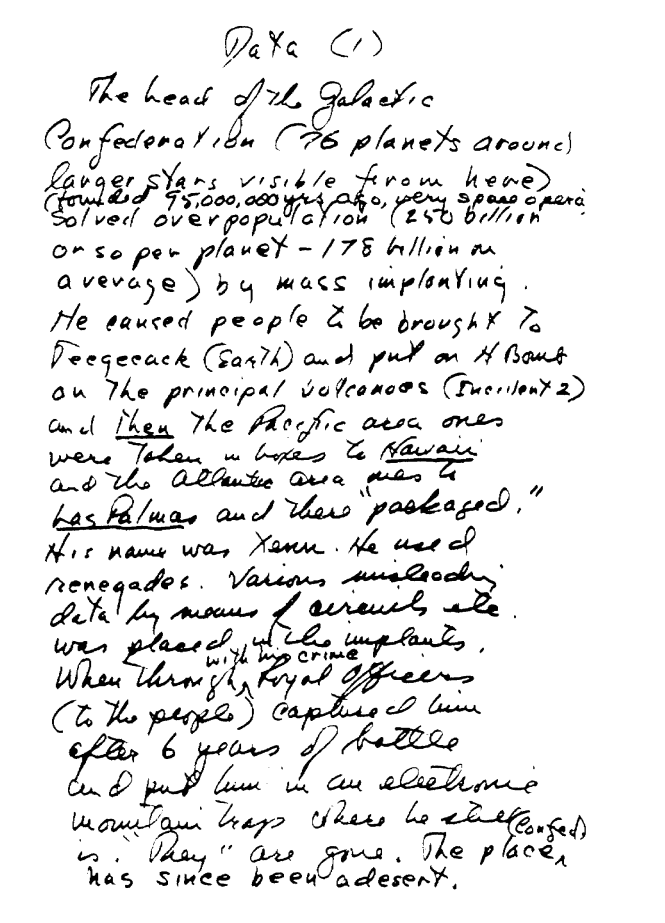 Data (1)
The head of the Galactic
Confederation (76 planets around
larger stars visible from here)
(founded 95,000,000 yrs ago, very space opera
solved overpopulation (250 billion
or so per planet - 178 billion on
average) by mass implanting.
He caused people to be brought to
Teegeeack (Earth) and put an H Bomb
on the principal volcanoes (Incident 2)
and then the Pacific area ones
were taken in boxes to Hawaii
and the Atlantic area ones to
Las Palmas and there "packaged."
His name was Xenu. He used
renegades. Various misleading
data by means of circuits etc.
was placed in the implants.
When through with his crime Loyal Officers
(to the people) captured him
after 6 years of battle
and put him in an electronic
mountain trap where he still
is. "They" are gone. The place (Confed)
has since been a desert.